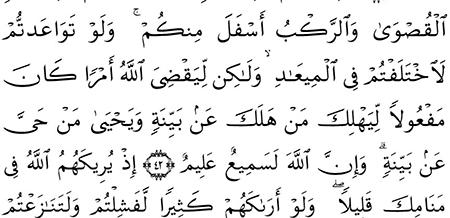 ٱلۡقُصۡوَىٰ وَٱلرَّكۡبُ أَسۡفَلَ مِنكُمۡۚ وَلَوۡ تَوَاعَدتُّمۡ
لَٱخۡتَلَفۡتُمۡ فِي ٱلۡمِيعَٰدِ وَلَٰكِن لِّيَقۡضِيَ ٱللَّهُ أَمۡرٗا كَانَ
مَفۡعُولٗا لِّيَهۡلِكَ مَنۡ هَلَكَ عَنۢ بَيِّنَةٖ وَيَحۡيَىٰ مَنۡ حَيَّ
عَنۢ بَيِّنَةٖۗ وَإِنَّ ٱللَّهَ لَسَمِيعٌ عَلِيمٌ ٤٢ إِذۡ يُرِيكَهُمُ ٱللَّهُ فِي
مَنَامِكَ قَلِيلٗاۖ وَلَوۡ أَرَىٰكَهُمۡ كَثِيرٗا لَّفَشِلۡتُمۡ وَلَتَنَٰزَعۡتُمۡ